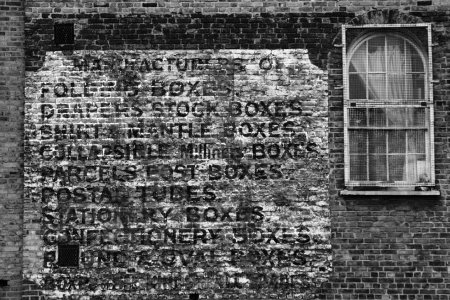 MANUFACTURERS OF
FOLDING BOXES.
DRAPERS STOCK BOXES.
SHIRT & MANTLE BOXES.
COLLAPSIBLE Millinery BOXES.
PARCELS POST BOXES.
POSTAL TUBES.
STATIONERY BOXES.
CONFECTIONERY BOXES.
ROUND & OVAL BOXES.